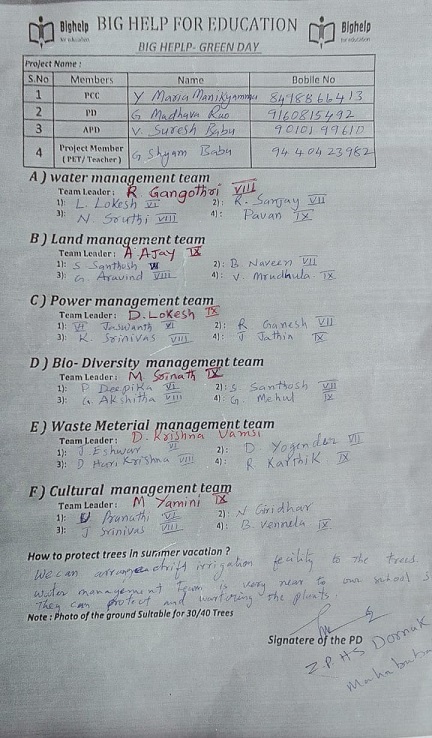 Bighelp for education BIG HELP FOR EDUCATION Bighelp for education
BIG HEPLP- GREEN DAY
Project Name :
S.No Members Name Boblle No
1 PCC Y Maria Manikyammu 8498866413
2 PD G Madhava Rao 9160815492
3 APD V. Suresh Babu 9010199610
4 Project Member (PET/ Teacher) G Shyam Babu 9440423982
A ) water management team
Team Leader : R Gangothri VIII
1): L. Lokesh VI 2): R. Sanjay VII
3): N. Sruthi VIII 4): Pavan IX
B ) Land management team
Team Leader : A AJay IX
1): S Santhosh VI 2): B Naveen VII
3): G. Aravind VIII 4): V. Mrudhula IX
C ) Power management team
Team Leader : D. LoKesh IX
1): VI Jaswanth VI 2): R Ganesh VII
3): K. Srinivas VIII 4): J Jathin IX
D ) Bio- Diversity management team
Team Leader : M Srinath IX
1): P Deepika VI 2): S Santhosh VII
3): G. Akshitha VIII 4): G. Mehul IX
E ) Waste Meterial management team
Team Leader : D. Krishna Vamsi
1): J Eshwar VI 2): D Yogender VII
3): D Hari Krishna VIII 4): R Karthik IX
F ) Cultural management team
Team Leader : M Yamini IX
1): Pranathi VI 2): N Giridhar
3): J Srinivas VIII 4): B. Vennela IX
How to protect trees in summer vacation ?
We can drift irrigation fecility to the trees.
water management team is very near to our school
They can protect and the plants.
Note : Photo of the ground Suitable for 30/40 Trees
Signatere of the PD
Z.P.H.S Dornak
Mahabuba